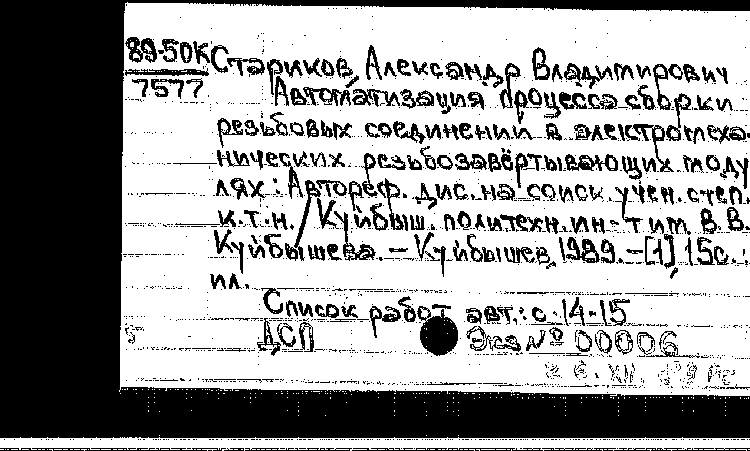 89-50К Стариков, Александр Владимирович
7577
Автоматизация процесса сборки
резьбовых соединений в электромеха-
нических резьбозавёртывающих моду
лях : Автореф. дис. на соиск. учен. степ.
к.т.н. / Куйбыш. политехн. ин-т им. В.В.
Куйбышева. – Куйбышев, 1989. – [1], 15с. :
ил.
Список работ авт.: с. 14-15
ДСП Экз № 00006